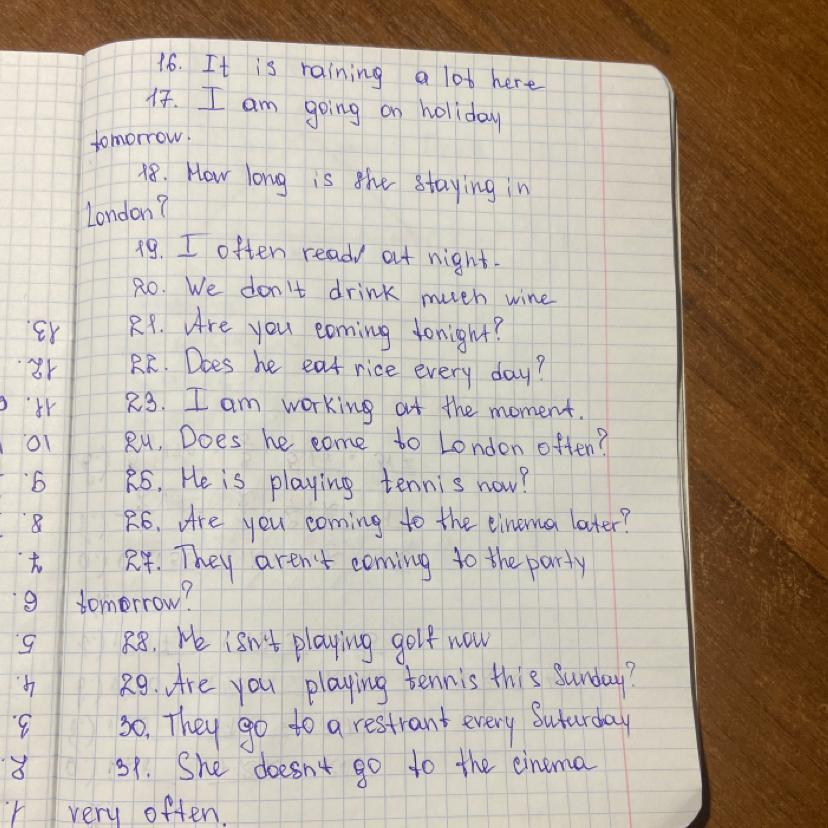 16. It is raining a lot here
17. I am going on holiday
tomorrow.
18. How long is she staying in
London?
19. I often read at night.
20. We don't drink much wine
21. Are you coming tonight?
22. Does he eat rice every day?
23. I am working at the moment.
24. Does he come to London often?
25. He is playing tennis now?
26. Are you coming to the cinema later?
27. They aren't coming to the party
tomorrow?
28. He isn't playing golf now
29. Are you playing tennis this Sunday?
30. They go to a restrant every Suturday
31. She doesn't go to the cinema
very often.
13.
12.
11.
10
9.
8.
7.
6.
5.
4.
3.
2.
1.